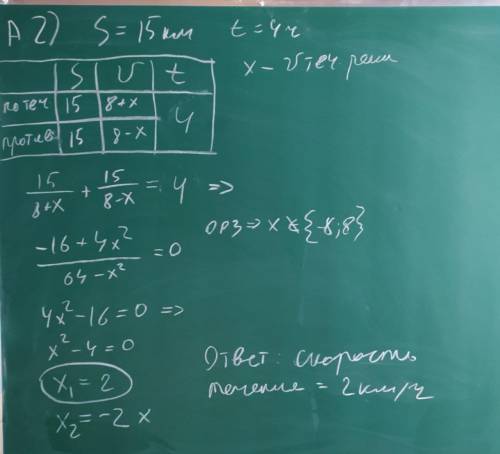 А 2) S = 15 км t = 4 ч
x – v теч. реки
S v t
по теч 15 8+x 4
против 15 8-x
15/(8+x) + 15/(8-x) = 4 =>
ОРЗ => x ∉ {-8; 8}
(-16 + 4x²)/(64 - x²) = 0
4x² - 16 = 0 =>
x² - 4 = 0
x₁ = 2
x₂ = -2 x
Ответ: скорость
течение = 2 км/ч